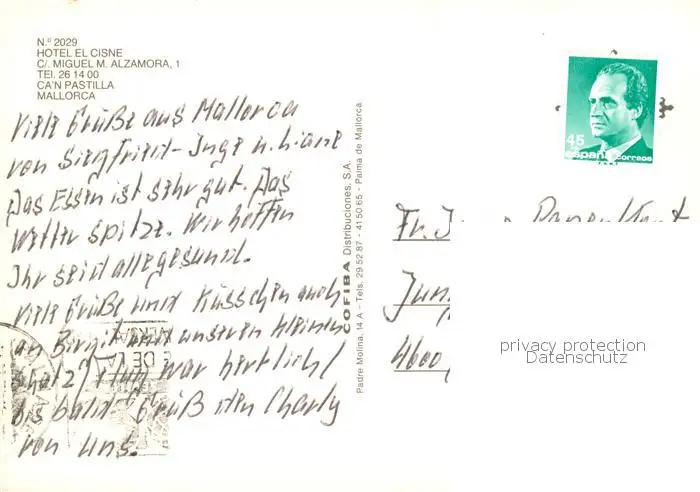 N.º 2029
HOTEL EL CISNE
C/. MIGUEL M. ALZAMORA, 1
Tel. 26 14 00
CA'N PASTILLA
MALLORCA
viele Grüße aus Mallorca
von Siegfried-Inge u. Liane
Das Essen ist sehr gut. Das
Wetter spitze. Wir hoffen
Ihr seid alle gesund.
viele Grüße und Küsschen auch
an Birgit und unseren kleinen
Schatz, Flug war herrlich/
bis bald Grüß den Charly
von uns.
COFIBA Distribuciones, S.A.
Padre Molina, 14 A - Tels. 29 52 87 - 41 50 65 - Palma de Mallorca
45
españa correos
Fr.
4600,
privacy protection
Datenschutz